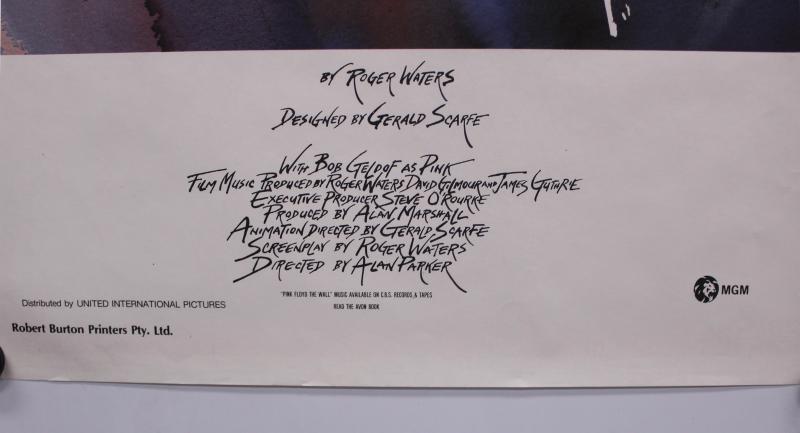 BY ROGER WATERS
DESIGNED BY GERALD SCARFE
WITH BOB GELDOF AS PINK
FILM MUSIC PRODUCED BY ROGER WATERS DAVID GILMOUR AND JAMES GUTHRIE
EXECUTIVE PRODUCER STEVE O'ROURKE
PRODUCED BY ALAN MARSHALL
ANIMATION DIRECTED BY GERALD SCARFE
SCREENPLAY BY ROGER WATERS
DIRECTED BY ALAN PARKER
"PINK FLOYD THE WALL" MUSIC AVAILABLE ON C.B.S. RECORDS & TAPES
READ THE AVON BOOK
MGM
Distributed by UNITED INTERNATIONAL PICTURES
Robert Burton Printers Pty. Ltd.